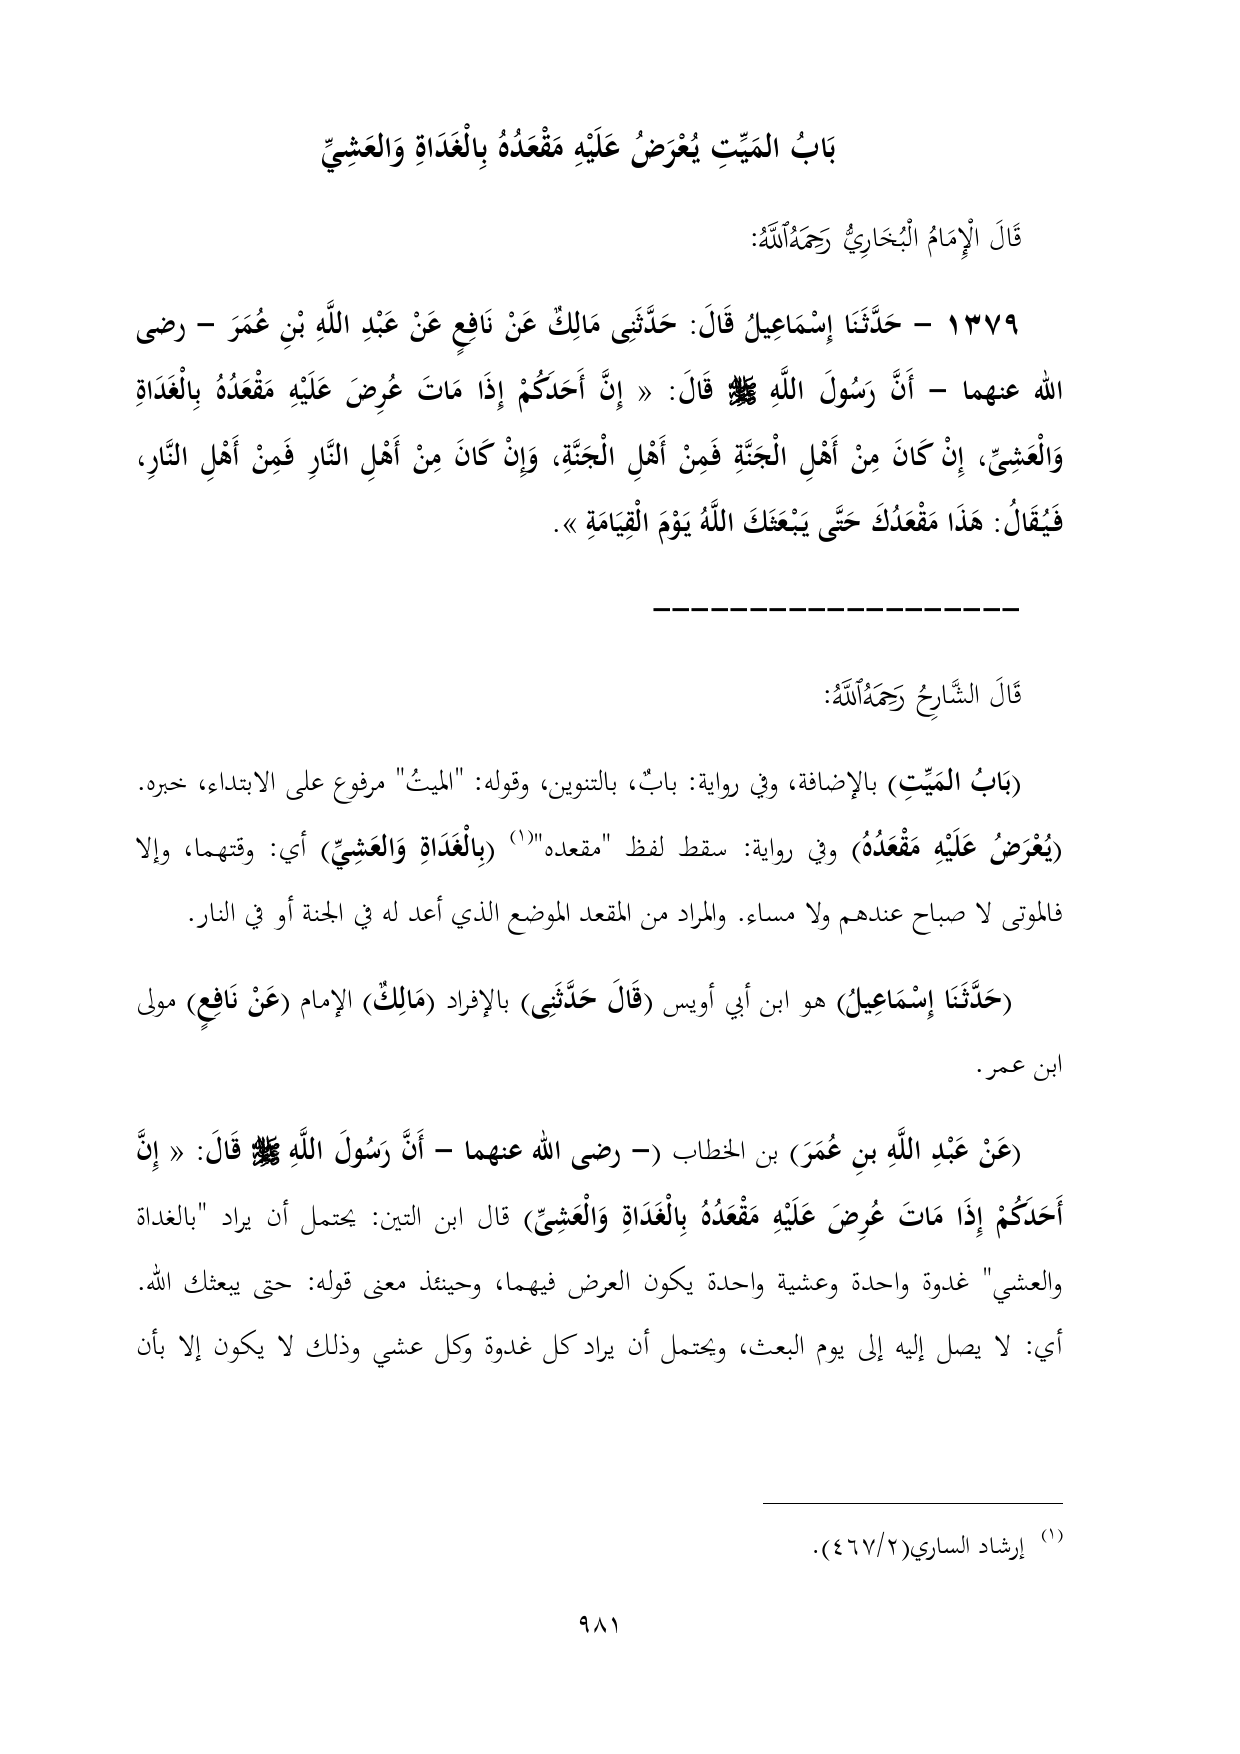 بَابُ المَيِّتِ يُعْرَضُ عَلَيْهِ مَقْعَدُهُ بِالْغَدَاةِ وَالعَشِيِّ
قَالَ الْإِمَامُ الْبُخَارِيُّ رَحِمَهُ ٱللَّهُ:
١٣٧٩ – حَدَّثَنَا إِسْمَاعِيلُ قَالَ: حَدَّثَنِى مَالِكٌ عَنْ نَافِعٍ عَنْ عَبْدِ اللَّهِ بْنِ عُمَرَ – رضى
الله عنهما – أَنَّ رَسُولَ اللَّهِ ﷺ قَالَ: « إِنَّ أَحَدَكُمْ إِذَا مَاتَ عُرِضَ عَلَيْهِ مَقْعَدُهُ بِالْغَدَاةِ
وَالْعَشِىِّ، إِنْ كَانَ مِنْ أَهْلِ الْجَنَّةِ فَمِنْ أَهْلِ الْجَنَّةِ، وَإِنْ كَانَ مِنْ أَهْلِ النَّارِ فَمِنْ أَهْلِ النَّارِ،
فَيُقَالُ: هَذَا مَقْعَدُكَ حَتَّى يَبْعَثَكَ اللَّهُ يَوْمَ الْقِيَامَةِ ».
–––––––––––––––––––
قَالَ الشَّارِحُ رَحِمَهُ ٱللَّهُ:
(بَابُ المَيِّتِ) بالإضافة، وفي رواية: بابٌ، بالتنوين، وقوله: "الميتُ" مرفوع على الابتداء، خبره.
(يُعْرَضُ عَلَيْهِ مَقْعَدُهُ) وفي رواية: سقط لفظ "مقعده"(١) (بِالْغَدَاةِ وَالعَشِيِّ) أي: وقتهما، وإلا
فالموتى لا صباح عندهم ولا مساء. والمراد من المقعد الموضع الذي أعد له في الجنة أو في النار.
(حَدَّثَنَا إِسْمَاعِيلُ) هو ابن أبي أويس (قَالَ حَدَّثَنِى) بالإفراد (مَالِكٌ) الإمام (عَنْ نَافِعٍ) مولى
ابن عمر.
(عَنْ عَبْدِ اللَّهِ بنِ عُمَرَ) بن الخطاب (– رضى الله عنهما – أَنَّ رَسُولَ اللَّهِ ﷺ قَالَ: « إِنَّ
أَحَدَكُمْ إِذَا مَاتَ عُرِضَ عَلَيْهِ مَقْعَدُهُ بِالْغَدَاةِ وَالْعَشِىِّ) قال ابن التين: يحتمل أن يراد "بالغداة
والعشي" غدوة واحدة وعشية واحدة يكون العرض فيهما، وحينئذ معنى قوله: حتى يبعثك الله.
أي: لا يصل إليه إلى يوم البعث، ويحتمل أن يراد كل غدوة وكل عشي وذلك لا يكون إلا بأن
(١) إرشاد الساري(٤٦٧/٢).
٩٨١